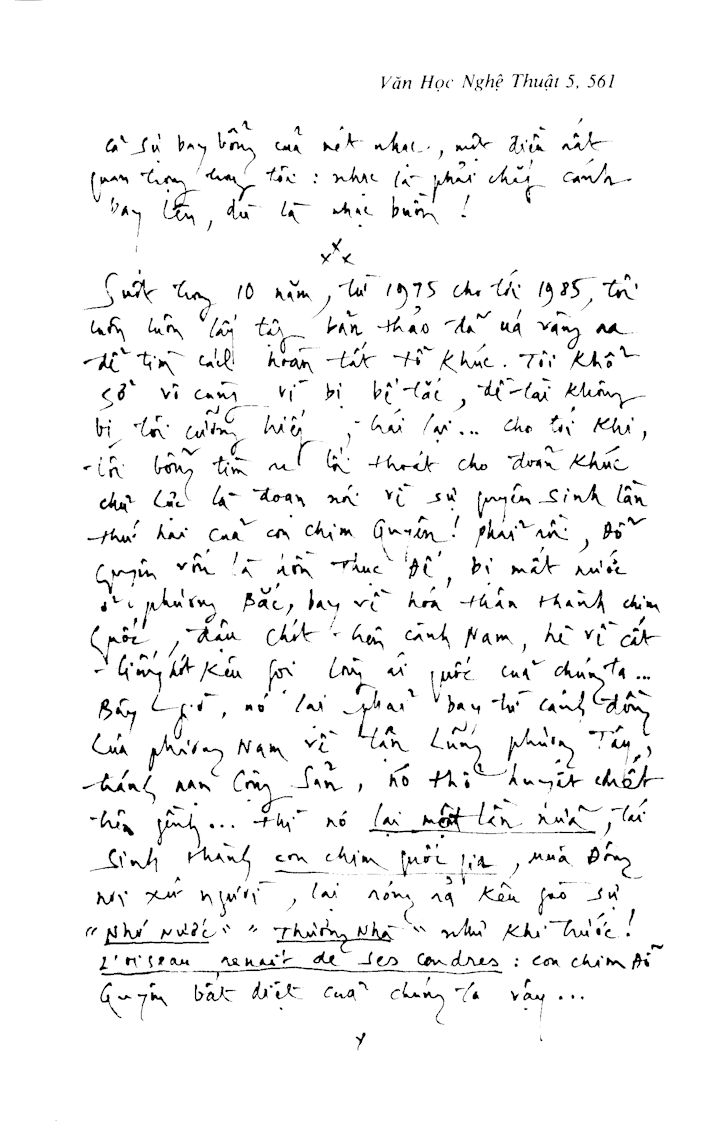 Văn Học Nghệ Thuật 5, 561
cả sự bay bổng của nét nhạc, một điều rất
quan trọng trong tôi : nhạc là phải chắp cánh
bay lên, dù là nhạc buồn !
xxx
Suốt trong 10 năm, từ 1975 cho tới 1985, tôi
luôn luôn lấy tập bản thảo đã úa vàng ra
để tìm cách hoàn tất tổ khúc. Tôi khổ
sở vô cùng vì bị bế-tắc, đề-tài không
bị tôi cưỡng hiếp, trái lại... cho tới khi,
tôi bỗng tìm ra lối thoát cho đoản khúc
chủ lực là đoạn nói về sự quyên sinh lần
thứ hai của con chim Quyên ! phải rồi, Đỗ
Quyên vốn là hồn Thục Đế, bị mất nước
ở phương Bắc, bay về hóa thân thành chim
Quốc, đậu chót trên cành Nam, hè về cất
tiếng hót kêu gọi lòng ái quốc của chúng ta...
Bây giờ, nó lại phải bay từ cánh đồng
lúa phương Nam về tận Lũng phương Tây,
tránh nạn Cộng Sản, nó thổ huyết chết
trên gềnh... thì nó lại một lần nữa, tái
sinh thành con chim quốc gia, mùa Đông
nơi xứ người, lại nóng nả kêu gào sự
"Nhớ Nước" "Thương Nhà" như khi trước !
L'oiseau renait de ses cendres : con chim Đỗ
Quyên bất diệt của chúng ta vậy...